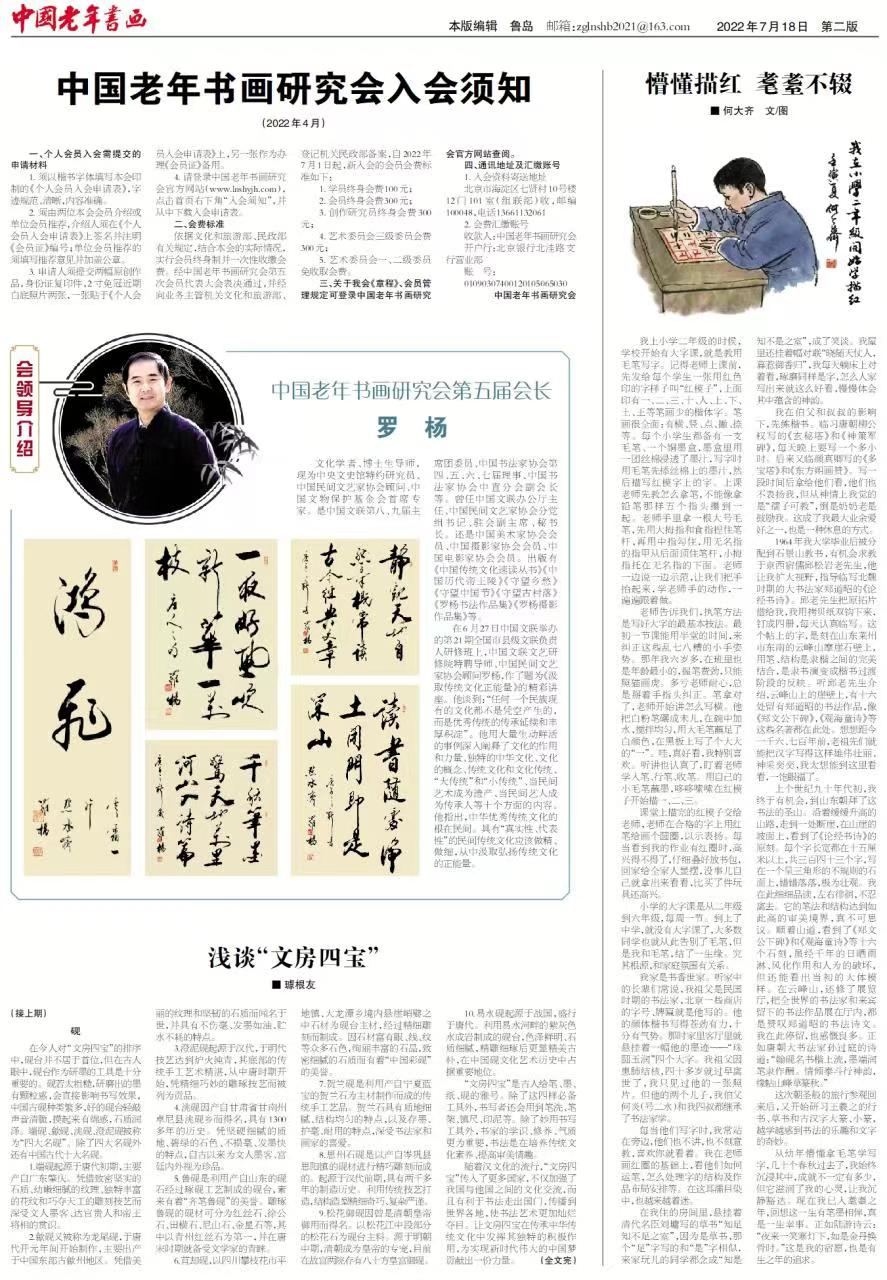 中国老年书画
本版编辑 鲁岛 邮箱:zglnshb2021@163.com 2022年7月18日 第二版
中国老年书画研究会入会须知
(2022年4月)
一、个人会员入会需提交的
申请材料
1. 须以楷书字体填写本会印
制的《个人会员入会申请表》,字
迹规范、清晰,内容准确。
2. 须由两位本会会员介绍或
单位会员推荐,介绍人须在《个人
会员入会申请表》上签名并注明
《会员证》编号;单位会员推荐的
须填写推荐意见并加盖公章。
3. 申请人须提交两幅原创作
品,身份证复印件,2寸免冠近期
白底照片两张,一张贴于《个人会
员入会申请表》上,另一张作为办
理《会员证》备用。
4. 请登录中国老年书画研究
会官方网站(www.lnshyjh.com),
点击首页右下角“入会须知”,并
从中下载入会申请表。
二、会费标准
依据文化和旅游部、民政部
有关规定,结合本会的实际情况,
实行会员终身制并一次性收缴会
费。经中国老年书画研究会第五
次会员代表大会表决通过,并经
向业务主管机关文化和旅游部、
登记机关民政部备案,自2022年
7月1日起,新入会的会员会费标
准如下:
1. 学员终身会费100元;
2. 会员终身会费300元;
3. 创作研究员终身会费300
元;
4. 艺术委员会三级委员会费
300元;
5. 艺术委员会一、二级委员
免收取会费。
三、关于我会《章程》、会员管
理规定可登录中国老年书画研究
会官方网站查阅。
四、通讯地址及汇缴账号
1. 入会资料寄送地址
北京市海淀区七贤村10号楼
12门101室(组联部)收,邮编
100048,电话13661132061
2. 会费汇缴账号
收款人:中国老年书画研究会
开户行:北京银行北洼路支
行营业部
账 号:
01090307400120105065030
中国老年书画研究会
会领导介绍
中国老年书画研究会第五届会长
罗 杨
文化学者、博士生导师,
现为中央文史馆特约研究员、
中国民间文艺家协会顾问、中
国文物保护基金会首席专
家。是中国文联第八、九届主
席团委员,中国书法家协会第
四、五、六、七届理事,中国书
法家协会中直分会副会长
等。曾任中国文联办公厅主
任、中国民间文艺家协会分党
组书记、驻会副主席、秘书
长。还是中国美术家协会会
员、中国摄影家协会会员、中
国电影家协会会员。出版有
《中国传统文化速读丛书》《中
国历代帝王陵》《守望乡愁》
《守望中国节》《守望古村落》
《罗杨书法作品集》《罗杨摄影
作品集》等。
在6月27日中国文联举办
的第21期全国市县级文联负责
人研修班上,中国文联文艺研
修院特聘导师、中国民间文艺
家协会顾问罗杨,作了题为《汲
取传统文化正能量》的精彩讲
座。他谈到:“任何一个民族现
有的文化都不是凭空产生的,
而是优秀传统的传承延续和丰
厚积淀”。他用大量生动鲜活
的事例深入阐释了文化的作用
和力量、独特的中华文化、文化
的概念、传统文化和文化传统、
“大传统”和“小传统”、当民间
艺术成为遗产、当民间艺人成
为传承人等十个方面的内容。
他指出,中华优秀传统文化的
根在民间。具有“真实性、代表
性”的民间传统文化应该做精、
做细,从中汲取弘扬传统文化
的正能量。
鸿飞
一夜好风吹
新华一万
枝
静观天地自
古今经典文章
读书随处净
土闭门即是
深山
千秋笔墨
惊天地万里
河山入诗篇
浅谈“文房四宝”
■ 璩根友
(接上期)
砚
在今人对“文房四宝”的排序
中,砚台并不居于首位,但在古人
眼中,砚台作为研墨的工具是十分
重要的。砚若太粗糙,研磨出的墨
有颗粒感,会直接影响书写效果,
中国古砚种类繁多,好的砚台轻敲
声音清脆,摸起来有细感,石质润
泽。端砚、歙砚、洮砚、澄泥砚被称
为“四大名砚”。除了四大名砚外
还有中国古代十大名砚。
1.端砚起源于唐代初期,主要
产自广东肇庆。凭借致密坚实的
石质、幼嫩细腻的纹理、独特丰富
的花纹和巧夺天工的雕刻技艺而
深受文人墨客、达官贵人和帝王
将相的赏识。
2.歙砚又被称为龙尾砚,于唐
代开元年间开始制作,主要出产
于中国东部古徽州地区。凭借美
丽的纹理和坚韧的石质而闻名于
世,并具有不伤毫、发墨如油、贮
水不耗的特点。
3.澄泥砚起源于汉代,于明代
技艺达到炉火纯青,其原部的传
统手工艺术精湛,从中唐时期开
始,凭精细巧妙的雕琢技艺而被
列为贡品。
4.洮砚因产自甘肃省甘南州
卓尼县洮砚乡而得名,具有1300
多年的历史。凭坚硬细腻的质
地、碧绿的石色、不损毫、发墨快
的特点,自古以来为文人墨客、宫
廷内外视为珍品。
5.鲁砚是利用产自山东的砚
石经过琢砚工艺制成的砚台,素
来有着“齐笔鲁砚”的美誉。雕琢
鲁砚的砚材可分为红丝石、徐公
石、田横石、尼山石、金星石等,其
中以青州红丝石为第一,并在唐
宋时期就备受文学家的青睐。
6.苴却砚,以四川攀枝花市平
地镇、大龙潭乡境内悬崖峭壁之
中石材为砚台主材,经过精细雕
刻而制成。因石材富有眼、线、纹
等众多石色,绚丽丰富的石品,致
密细腻的石质而有着“中国彩砚”
的美誉。
7.贺兰砚是利用产自宁夏蓝
宝的贺兰石为主材制作而成的传
统手工艺品。贺兰石具有质地细
腻、结构均匀的特点,以及存墨、
护毫、耐用的特点,深受书法家和
画家的喜爱。
8.思州石砚是以产自岑巩县
思阳镇的砚材进行精巧雕刻而成
的。起源于汉代前期,具有两千多
年的制造历史。利用传统技艺打
造,结构造型精细奇巧、复杂严谨。
9.松花御砚因曾是清朝皇帝
御用而得名。以松花江中段部分
的松花石为砚台主料。源于明朝
中期,清朝成为皇帝的专宠,目前
在故宫两院存有八十方皇宫御砚。
10.易水砚起源于战国,盛行
于唐代。利用易水河畔的紫灰色
水成岩制成的砚台,色泽鲜明、石
质细腻,精雕细琢后更显精美古
朴,在中国砚文化艺术历史中占
据重要地位。
“文房四宝”是古人绘笔、墨、
纸、砚的雅号。除了这四样必备
工具外,书写者还会用到笔洗、笔
架、镇尺、印泥等。除了妙用书写
工具外,书家的学识、修养、气质
更为重要,书法是在培养传统文
化素养、提高审美情趣。
随着汉文化的流行,“文房四
宝”传入了更多国家,不仅加强了
我国与他国之间的文化交流,而
且有利于书法走出国门,传播到
世界各地,使书法艺术更加灿烂
夺目。让文房四宝在传承中华传
统文化中发挥其独特的积极作
用,为实现新时代伟大的中国梦
贡献出一份力量。 (全文完)
懵懂描红 耄耋不辍
■ 何大齐 文/图
我在小学二年级开始学描红
壬寅夏何大齐
我上小学二年级的时候,
学校开始有大字课,就是教用
毛笔写字。记得老师上课前,
先发给每个学生一张用红色
印的字样子叫“红模子”,上面
印有一、二、三、十、人、上、下、
土、王等笔画少的楷体字。笔
画很全面:有横、竖、点、撇、捺
等。每个小学生都备有一支
毛笔、一个铜墨盒,墨盒里用
一团丝棉浸透了墨汁,写字时
用毛笔先舔丝棉上的墨汁,然
后描写红模字上的字。上课
老师先教怎么拿笔,不能像拿
铅笔那样五个指头攥到一
起。老师手里拿一根大号毛
笔,先用大拇指和食指捏住笔
杆,再用中指勾住,用无名指
的指甲从后面顶住笔杆,小拇
指托在无名指的下面。老师
一边说一边示范,让我们把手
抬起来,学老师手的动作,一
遍遍跟着做。
老师告诉我们,执笔方法
是写好大字的最基本技法。最
初一节课能用半堂的时间,来
纠正这些乱七八糟的小手姿
势。那年我六岁多,在班里也
是年龄最小的,握笔费劲,只能
照猫画虎。多亏老师耐心,总
是掰着手指头纠正。笔拿对
了,老师开始讲怎么写横。他
把白粉笔碾成末儿,在碗中加
水,搅拌均匀,用大毛笔蘸足了
白颜色,在黑板上写了个大大
的“一”。哇,真好看,我特别喜
欢。听讲也认真了,盯着老师
学入笔、行笔、收笔。用自己的
小毛笔蘸墨,哆哆嗦嗦在红模
子开始描一、二、三。
课堂上描完的红模子交给
老师,老师在合格的字上用红
笔给画个圆圈,以示表扬。每
当看到我的作业有红圈时,高
兴得不得了,仔细叠好放书包,
回家给全家人显摆,没事儿自
己就拿出来看看,比买了件玩
具还高兴。
小学的大字课是从二年级
到六年级,每周一节。到上了
中学,就没有大字课了,大多数
同学也就从此告别了毛笔,但
是我和毛笔,结了一生缘。究
其根源,和家庭氛围有关系。
我家是书香世家。听家中
的长辈们常说,我祖父是民国
时期的书法家,北京一些商店
的字号、牌匾就是他写的。他
的颜体楷书写得苍劲有力,十
分有气势。那时家里客厅里就
悬挂着一幅他的墨迹——“珠
圆玉润”四个大字。我祖父因
患肺结核,四十多岁就过早离
世了,我只见过他的一张照
片。但他的两个儿子,我伯父
何炎(号二水)和我四叔都继承
了书法家学。
每当他们写字时,我常站
在旁边,他们也不讲,也不刻意
教,喜欢你就看着。我在老师
画红圈的基础上,看他们如何
运笔,怎么处理字的结构及作
品布局安排等。在这耳濡目染
中,也越来越着迷。
在我住的房间里,悬挂着
清代名臣刘墉写的草书“知足
知不足之室”,因为是草书,那
个“足”字写的和“是”字相似,
来家玩儿的同学都念成“知是
知不是之室”,成了笑谈。我屋
里还挂着幅对联“晓随天仗人,
暮惹御香归”,我每天躺床上对
着看,琢磨同样是字,怎么人家
写出来就这么好看,慢慢体会
其中蕴含的神韵。
我在伯父和叔叔的影响
下,先练楷书。临习唐朝柳公
权写的《玄秘塔》和《神策军
碑》,每天晚上要写一个多小
时。后来又临颜真卿写的《多
宝塔》和《东方朔画赞》。写一
段时间后拿给他们看,他们也
不表扬我,但从神情上我觉的
是“孺子可教”,倒是奶奶老是
鼓励我。这成了我最大业余爱
好之一,也是一种休息的方式。
1964年我大学毕业后被分
配到石景山教书,有机会求教
于京西宿儒邱松岩老先生,他
让我扩大视野,指导临写北魏
时期的大书法家郑道昭的《论
经书诗》。邱老先生把原拓片
借给我,我用拷贝纸双钩下来,
钉成四册,每天认真临写。这
个帖上的字,是刻在山东莱州
市东南的云峰山摩崖石壁上,
用笔、结构是隶楷之间的完美
结合,是隶书演变成楷书过渡
阶段的反映。听邱老先生介
绍,云峰山上的崖壁上,有十六
处留有郑道昭的书法作品,像
《郑文公下碑》,《观海童诗》等
这些名著都在此处。想想距今
一千六、七百年前,老祖先们就
能把汉字写得这样雄伟壮丽,
神采奕奕,我太想能到这里看
看,一饱眼福了。
上个世纪九十年代初,我
终于有机会,到山东朝拜了这
书法的圣山。沿着缓缓升高的
山路,走到一处断崖,在山崖的
坡面上,看到了《论经书诗》的
原刻。每个字长宽都在十五厘
米以上,共三百四十三个字,写
在一个呈三角形的不规则的石
面上,错错落落,极为壮观。我
在此细细品读,左右徘徊,不忍
离去。它的笔法和结构达到如
此高的审美境界,真不可思
议。顺着山道,看到了《郑文
公下碑》和《观海童诗》等十六
个石刻,虽经千年的日晒雨
淋、风化作用和人为的破坏,
但还能看出当初的大体模
样。在云峰山,还修了展览
厅,把全世界的书法家和来宾
留下的书法作品展在厅内,都
是赞叹郑道昭的书法诗文。
我在此停留,也感慨良多。正
如唐朝大书法家孙过庭的诗
道:“翰砚名书楷上流,墨端河
笔隶作酬。情倾拳斗行神韵,
缘融山峰草篆秋。”
这次朝圣般的旅行参观回
来后,又开始研习王羲之的行
书,草书和古汉字大篆、小篆,
越学越感到书法的乐趣和文字
的奇妙。
从幼年懵懂拿毛笔学写
字,几十个春秋过去了,我始终
沉浸其中,成就不一定有多少,
但它滋润了我的心灵,让我沉
静豁达。现在我已入耄耋之
年,回想这一生有笔墨相伴,真
是一生幸事。正如陆游诗云:
“夜来一笑寒灯下,如是金丹换
骨时。”这是我的宿愿,也是有
生之年的追求。